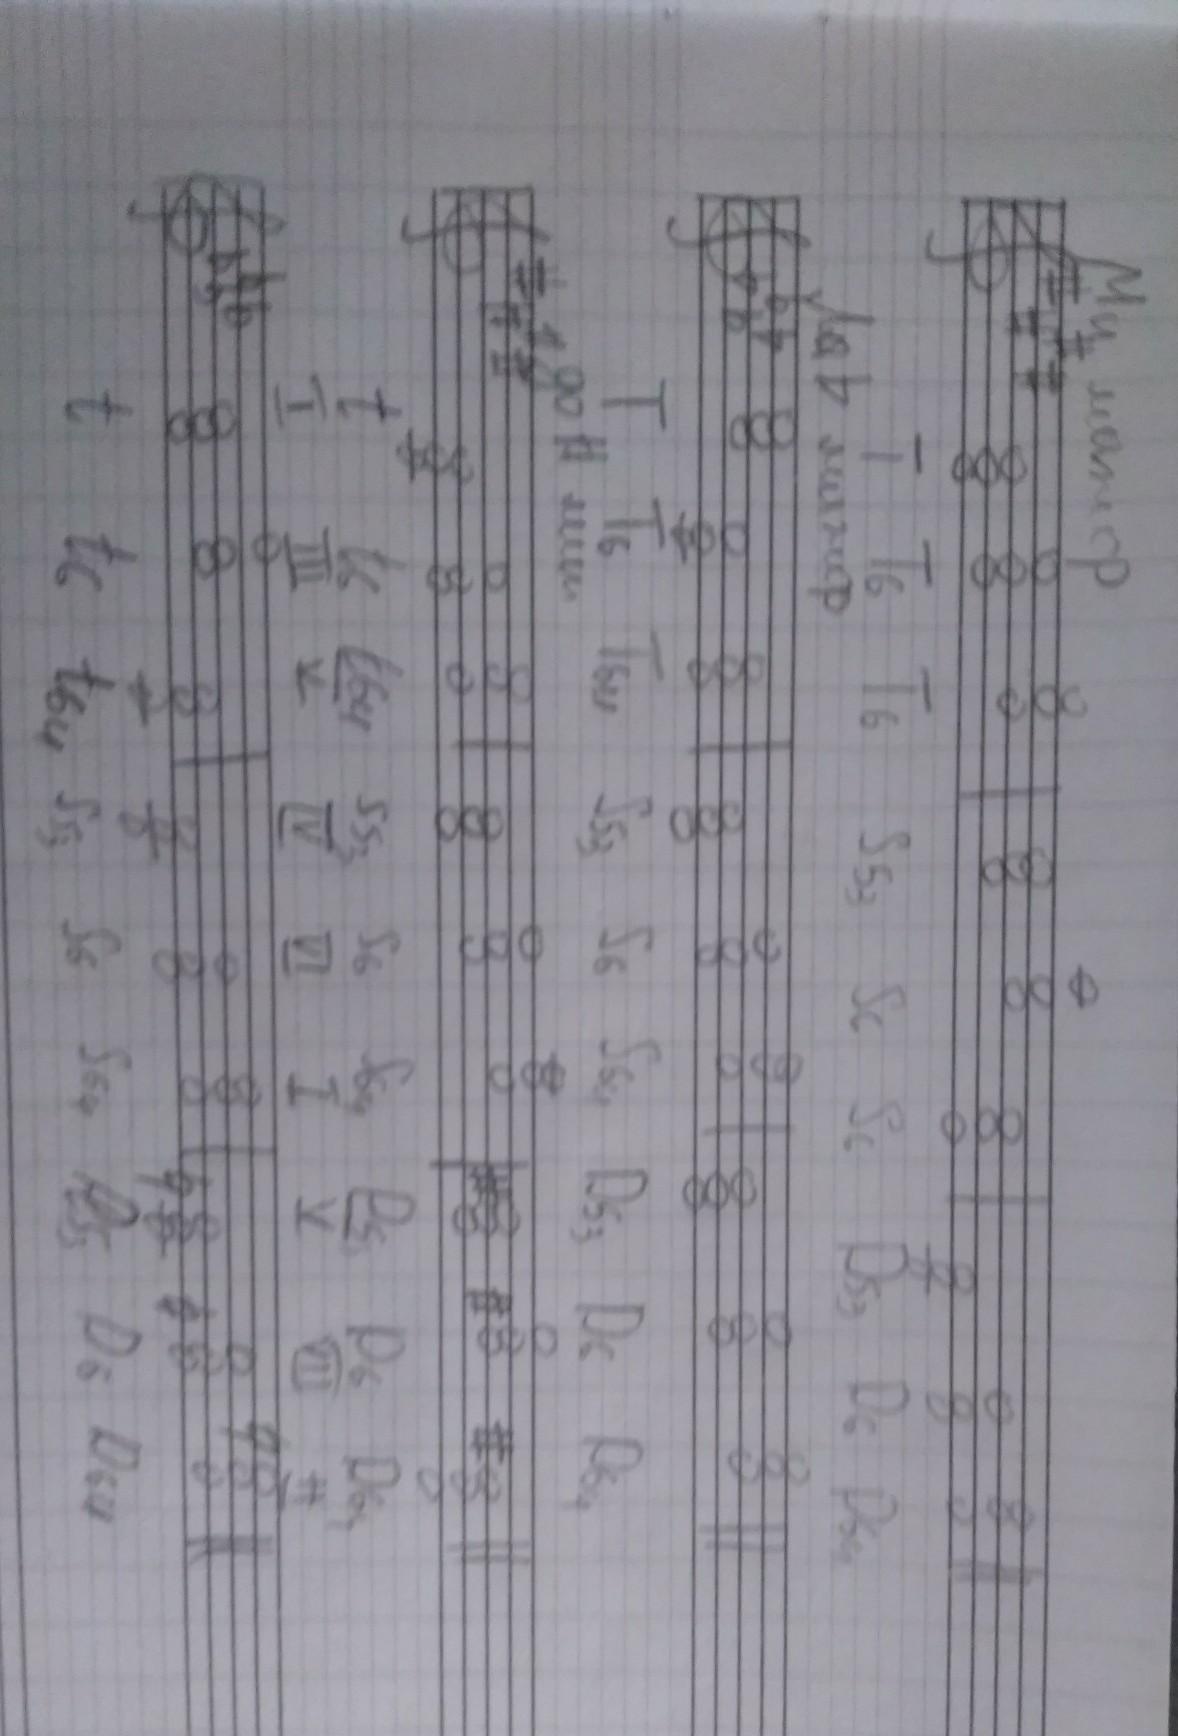 Ми мажор
T T6 T6 S53 S6 S6 D53 D6 D64
мажор
T T6 T64 S53 S6 S64 D53 D6 D64
до # мин
t t6 t64 S53 S6 S64 D53 D6 D64
I III V IV VI I V VII II
t t6 t64 S53 S6 S64 D53 D6 D64